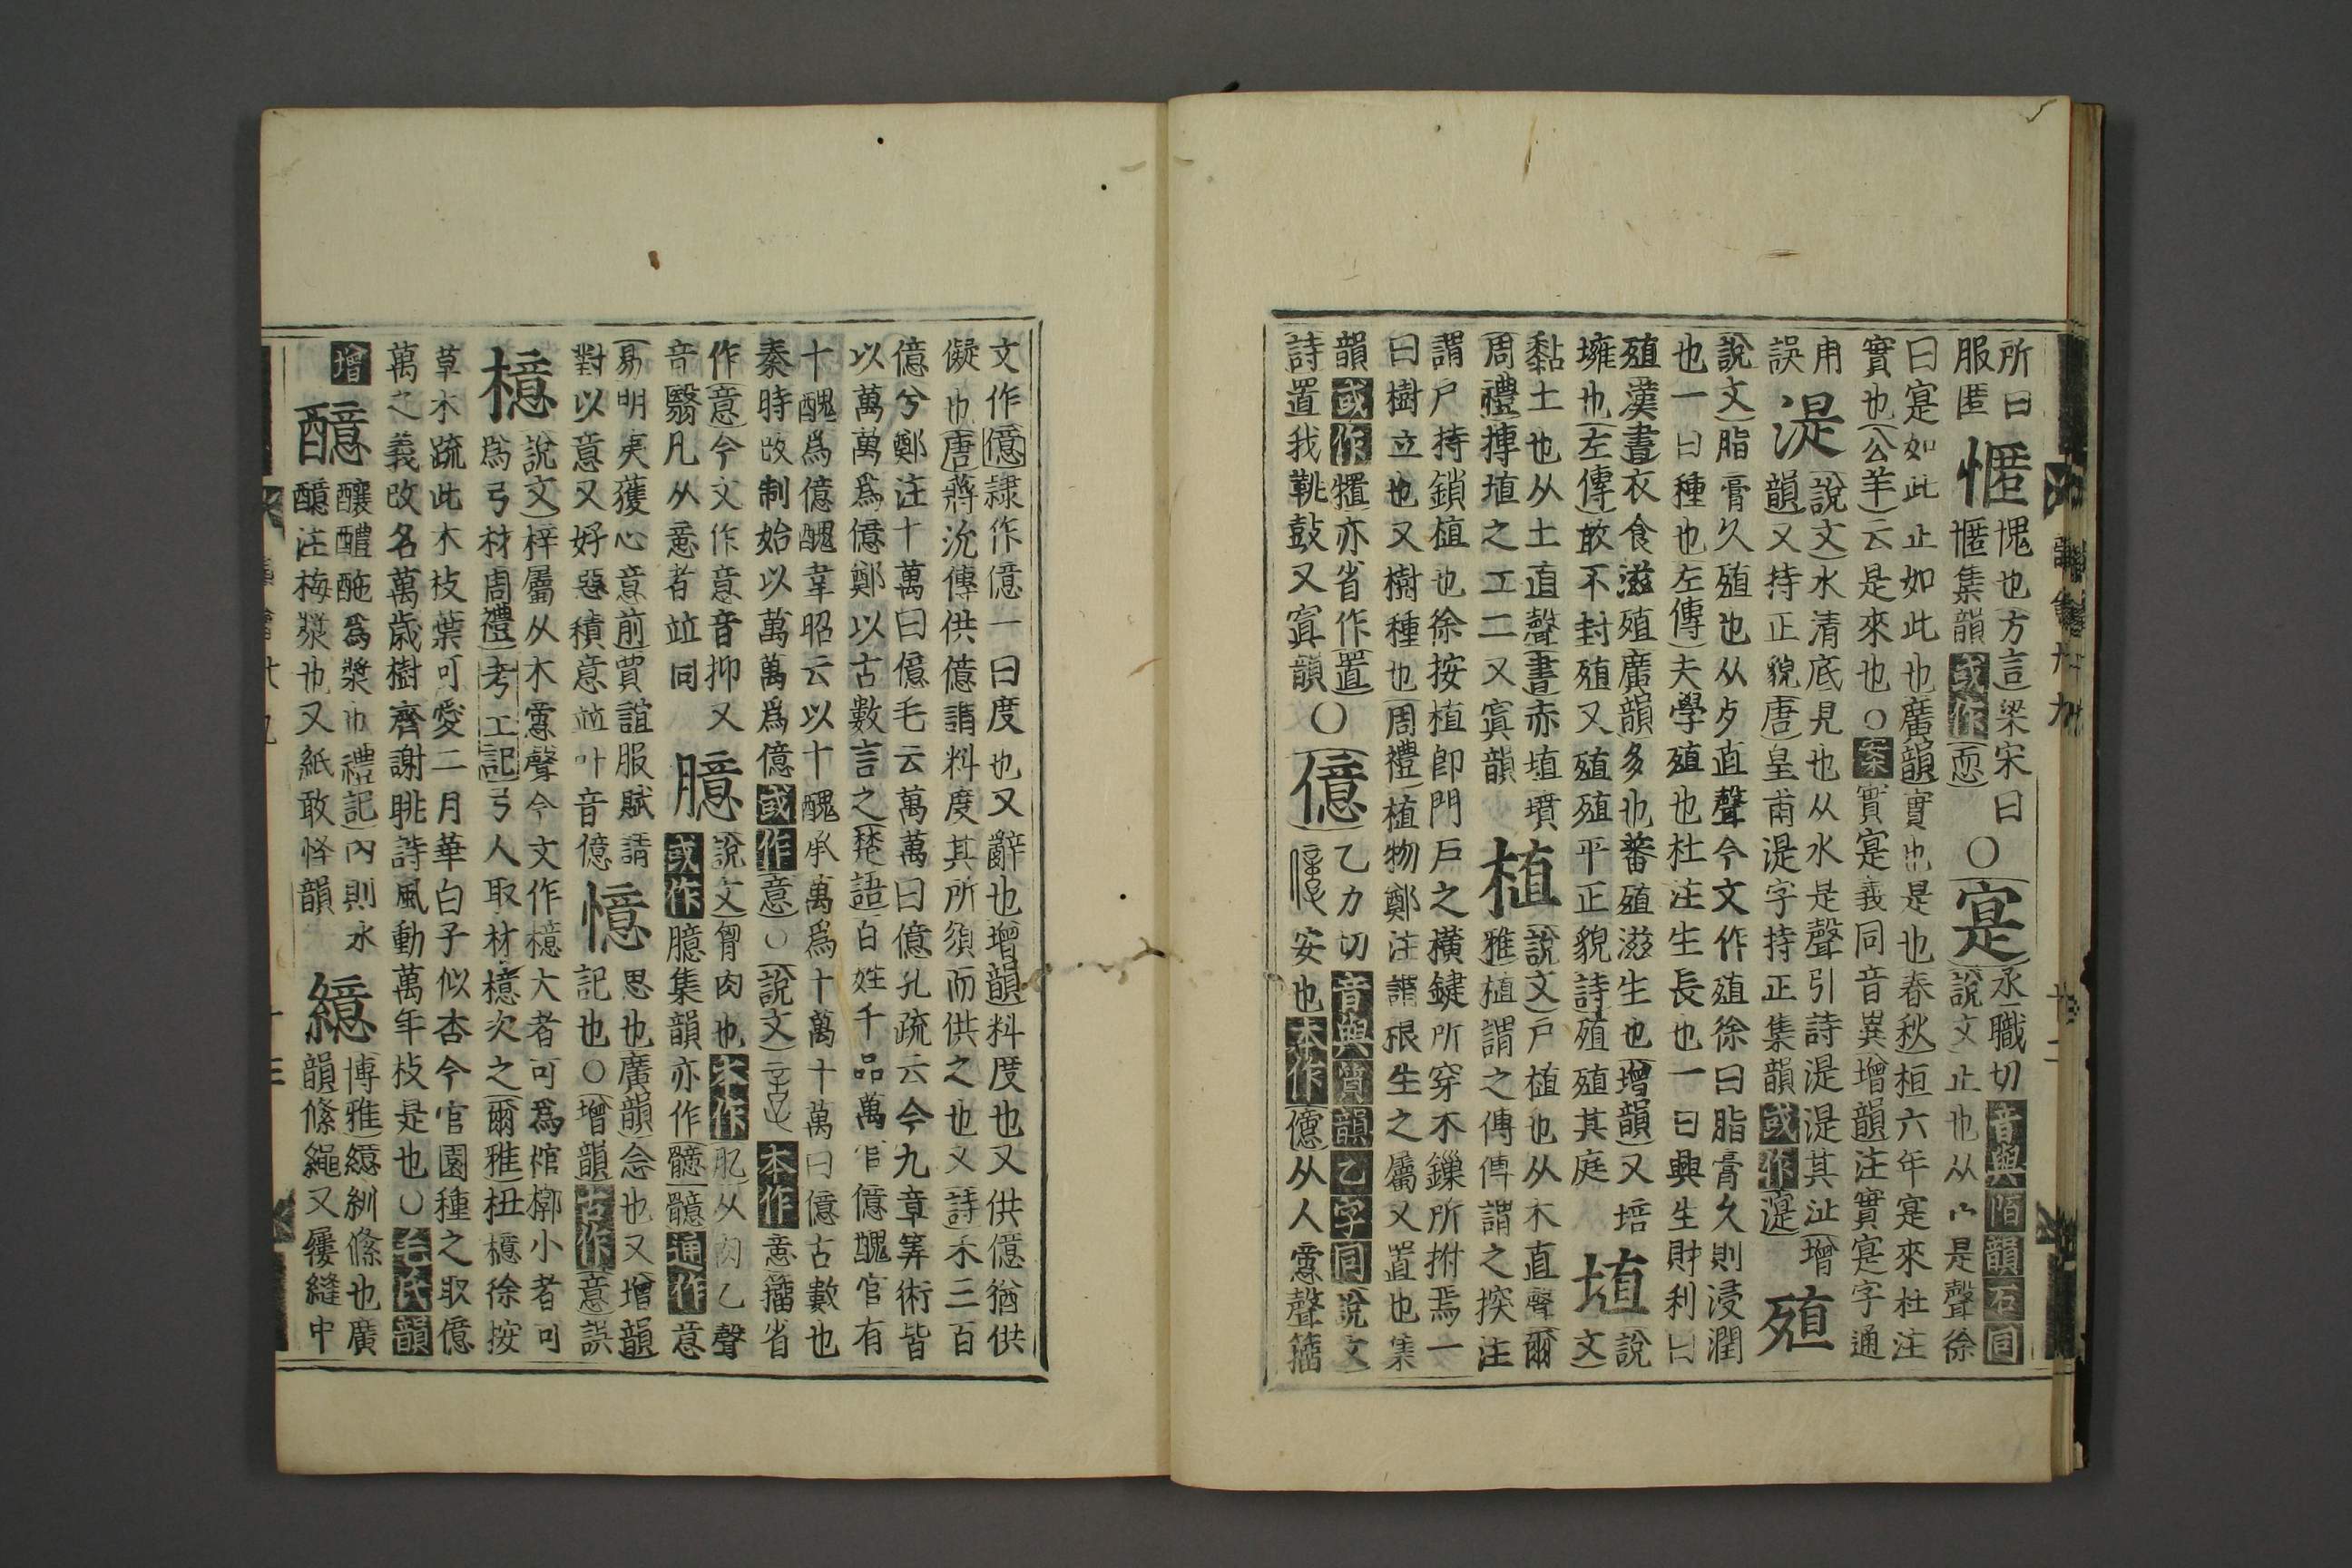 所曰
服匿
惬
愧也方言梁宋曰
惬集韻或作㥾
○寔
承職切音與陌韻石同
說文止也从宀是聲徐
曰寔如此止如此也廣韻實也是也春秋桓六年寔來杜注
實也公羊云是來也○案實寔義同音異增韻注實寔字通
用
誤
湜
說文水清底見也从水是聲引詩湜湜其沚增
韻又持正貌唐皇甫湜字持正集韻或作澸
殖
說文脂膏久殖也从歹直聲今文作殖徐曰脂膏久則浸潤
也一曰種也左傳夫學殖也杜注生長也一曰興生財利曰
殖漢書衣食滋殖廣韻多也蕃殖滋生也增韻又培
壅也左傳敢不封殖又殖殖平正貌詩殖殖其庭
埴
說文
黏土也从土直聲書赤埴墳
周禮摶埴之工二又寘韻
植
說文戶植也从木直聲爾
雅植謂之傳傳謂之揬注
謂戶持鎖植也徐按植卽門戶之橫鍵所穿不鏁所拊焉一
曰樹立也又樹種也周禮植物鄭注謂根生之屬又置也集
韻或作㯰亦省作置○
詩置我鞉鼓又寘韻
億
乙力切音與質韻乙字同說文
安也本作億从人意聲籀
文作億隷作億一曰度也又辭也增韻料度也又供億猶供
儗也唐蔣沇傳供億謂料度其所須而供之也又詩禾三百
億兮鄭注十萬曰億毛云萬萬曰億孔疏云今九章筭術皆
以萬萬爲億鄭以古數言之楚語百姓千品萬官億醜官有
十醜爲億醜韋昭云以十醜承萬爲十萬十萬曰億古數也
秦時改制始以萬萬爲億或作意○說文本作意籀省
作意今文作意音抑又
音翳凡从意者竝同
臆
說文胷肉也本作肊从肉乙聲
或作臆集韻亦作髓髓通作意
易明夷獲心意前賈誼服賦請
對以意又好惡積意竝叶音億
憶
思也廣韻念也又增韻
記也○增韻古作意誤
檍
說文梓屬从木意聲今文作檍大者可爲棺槨小者可
爲弓材周禮考工記弓人取材檍次之爾雅杻檍徐按
草木疏此木枝葉可愛二月華白子似杏今官園種之取億
萬之義改名萬歲樹齊謝朓詩風動萬年枝是也○毛氏韻
增
醷
釀醴酏爲漿也禮記內則水
醷注梅漿也又紙敢怪韻
繶
博雅繶紃絛也廣
韻絛繩又屨縫中